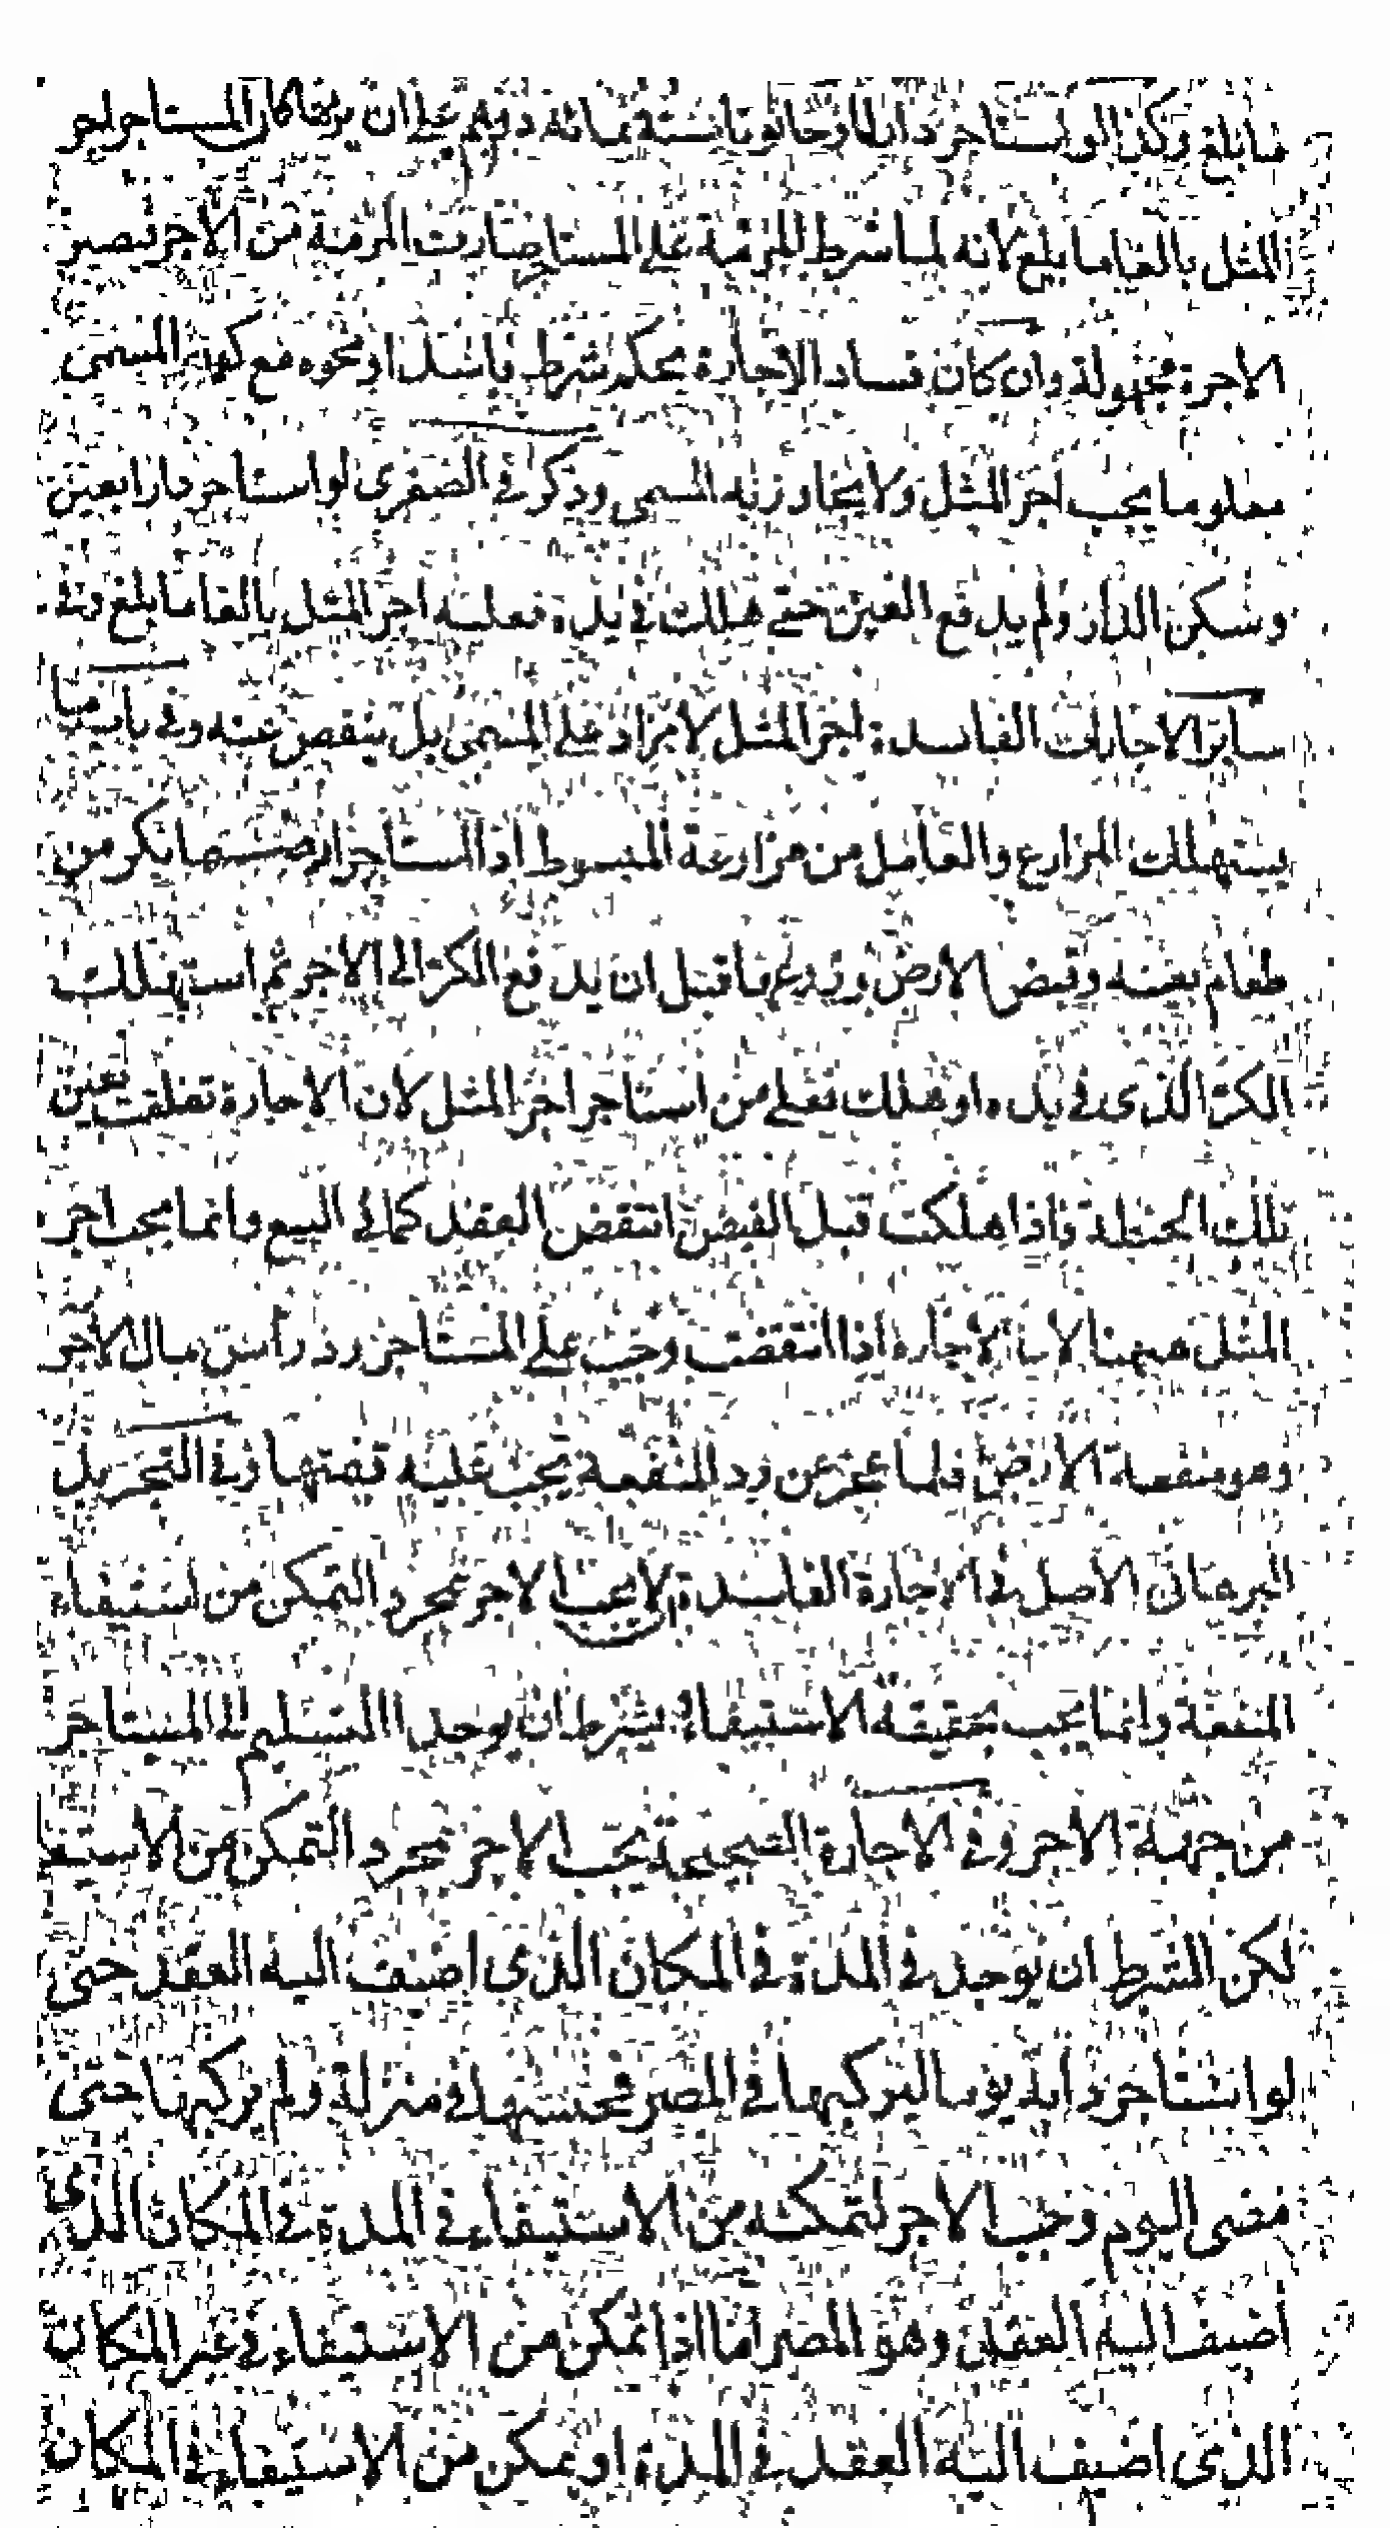 ما بلغ وكذا لو استاجر دارا او حانوتا سنة بمائة درهم على ان يرمها كان المستاجر اجر
المثل بالغا ما بلغ لانه لما شرط المرمة على المستاجر صارت المرمة من الاجر فتصير
الاجرة مجهولة وان كان فساد الاجارة بحكم شرط فاسد او نحوه مع كون المسمى
معلوما يجب اجر المثل ولا يجاوز به المسمى وذكر في الصغرى لو استاجر دارا بعين
وسكن الدار ولم يدفع العين حتى هلك في يده فعليه اجر المثل بالغا ما بلغ وفي
سائر الاجارات الفاسدة اجر المثل لا يزاد على المسمى بل ينقص عنه وفي باب ما
يستهلك المزارع والعامل من مزارعة المبسوط اذا استاجر ارضا بكر من
طعام بعينه وقبض الارض وزرعها قبل ان يدفع الكر الى الاجر ثم استهلك
الكر الذى في يده او هلك فعلى من استاجر اجر المثل لان الاجارة تعلقت بعين
تلك الحنطة فاذا هلكت قبل القبض انتقض العقد كما في البيع وانما يجب اجر
المثل ههنا لان الاجارة اذا انتقضت وجب على المستاجر رد راس مال الاجر
وهو منفعة الارض فلما عجز عن رد المنفعة يجب عليه قيمتها وفي التجريد
البرهانى الاصل في الاجارة الفاسدة لا يجب الاجر بمجرد التمكن من استيفاء
المنفعة وانما يجب بحقيقة الاستيفاء بشرط ان يوجد التسليم الى المستاجر
من جهة الاجر وفي الاجارة الصحيحة يجب الاجر بمجرد التمكن من الاستيفا
لكن الشرط ان يوجد في المدة في المكان الذى اضيف اليه العقد حتى
لو استاجر دابة يوما ليركبها في المصر فحبسها في منزله ولم يركبها حتى
مضى اليوم وجب الاجر لتمكنه من الاستيفاء في المدة في المكان الذى
اضيف اليه العقد وهو المصر اما اذا تمكن من الاستيفاء في غير المكان
الذى اضيف اليه العقد في المدة او تمكن من الاستيفاء في المكان